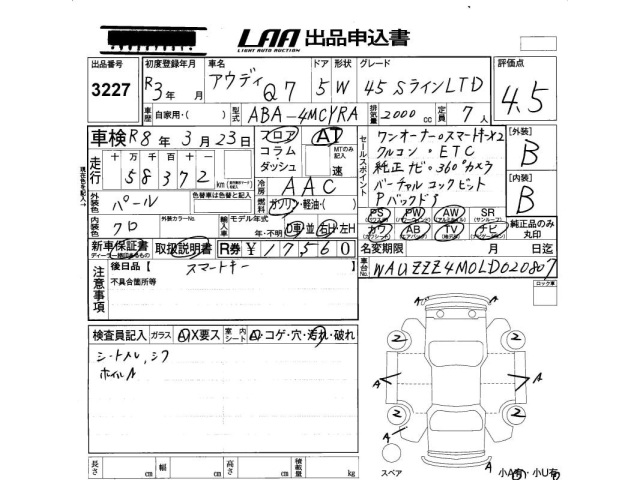 LAA 出品申込書
LIGHT AUTO AUCTION
出品番号 初度登録年月 車名 ドア 形状 グレード 評価点
3227 R3年 月 アウディ Q7 5 W 45 SラインLTD 4.5
車歴 自家用・( ) 型式 ABA-4MCYRA 排気量 2000 cc 定員 7人
車検 R8年 3月 23日 フロア AT セールスポイント ワンオーナー。スマートキー×2 [外装]
コラム・ MTのみ記入 クルコン・ETC B
走行 十 万 千 百 十 一 ダッシュ 速 純正ナビ・360°カメラ
58372 km 冷房 AAC バーチャルコックピット [内装]
外装色 パール 色替車は色替と記入 燃料 ガソリン・軽油・( ) Pバックドア B
内装色 クロ 外装カラーNo. 輸入車 モデル年式 年・不明 D車 並 右H 左H PS PW AW SR 純正品のみ
カワ AB TV ナビ 丸印
新車保証書 取扱説明書 R券 ¥17560 名変期限 月 日迄
ディーラー捺印あるもの
注意事項 後日品【 スマートキー 車台No. WAUZZZ4M0LD020807
不具合箇所等 ロック車
検査員記入 ガラス A X要ス 室内シート A・コゲ・穴・汚れ・破れ
シートスレ、シワ
ホイルA
2 2
A A A
2 2
A
長さ cm 幅 cm 高さ cm 積載量 kg スペア 小A有・小U有